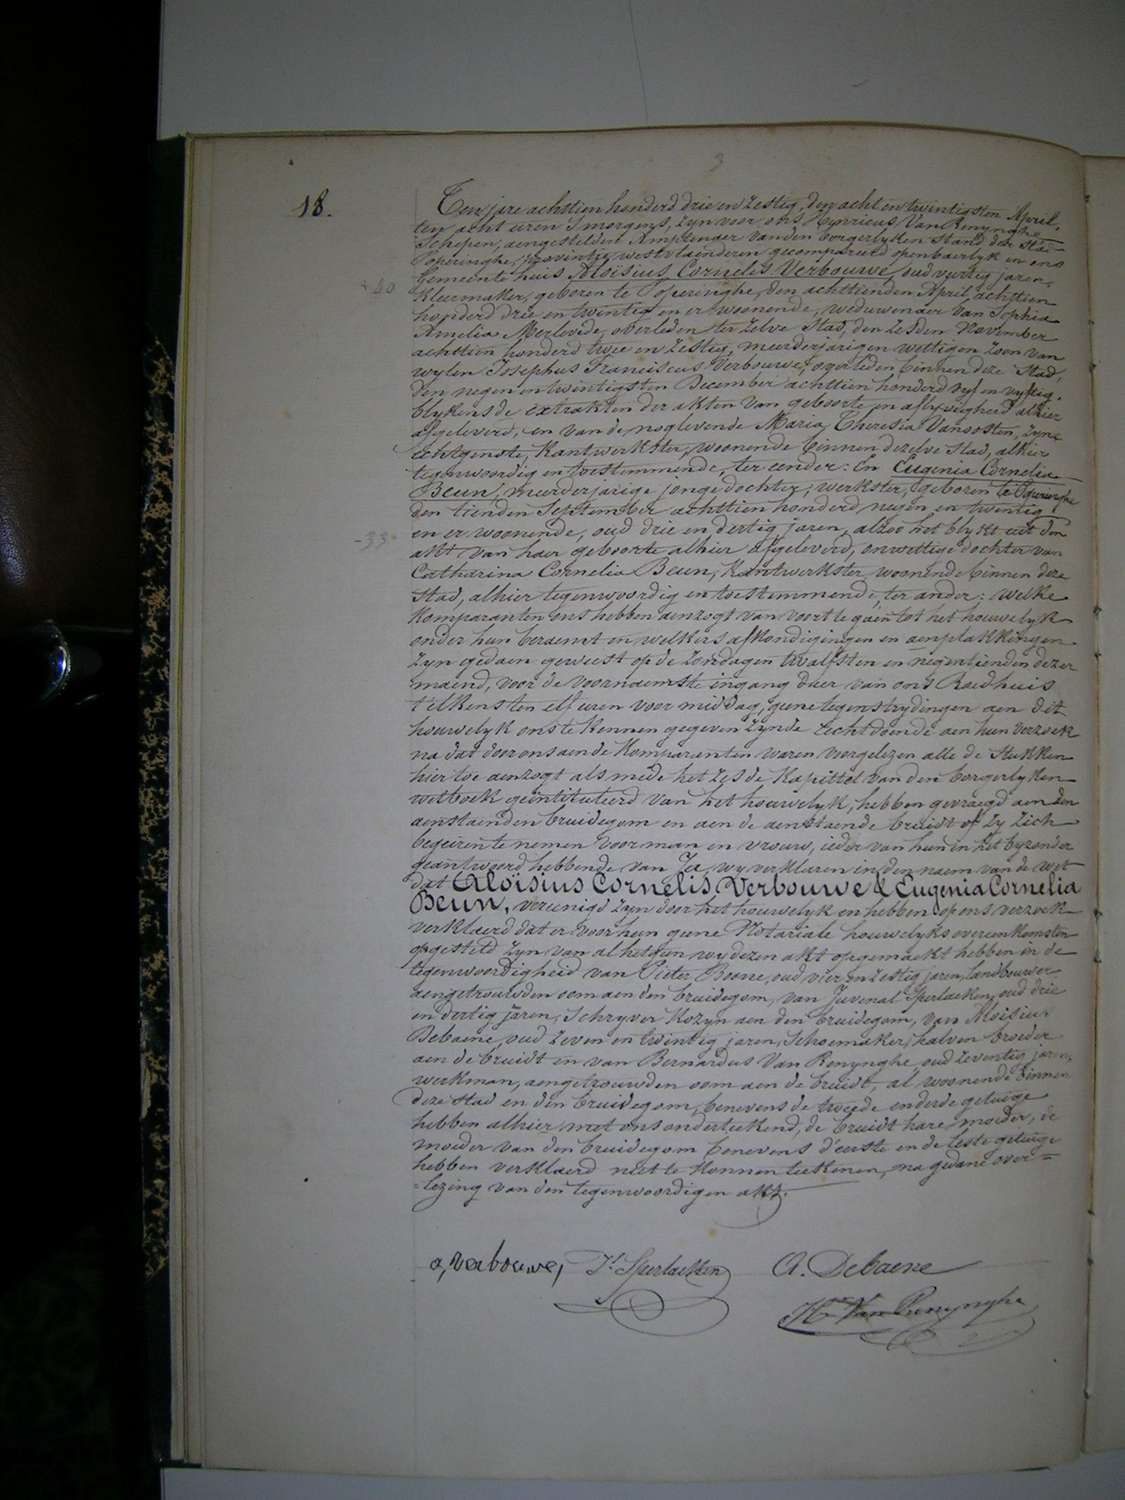 3
18.
Ten jare achttien honderd drie en zestig, den acht en twintigsten April,
ten acht uren 's morgens, zyn voor ons Henricus Van Renynghe
Schepen, aengestelden Amptenaer van den borgerlyken Stand der Stad
Poperinghe, provintie westvlaenderen gecompareerd openbaerlyk in ons
Gemeente huis Aloisius Cornelis Verbouwe, oud veertig jaren,
40
kleermaker, geboren te Poperinghe, den achttienden April achttien
honderd drie en twintig en er woonende, weduwenaer van Sophia
Amelia Merlevede, overleden ter zelve Stad, den zesden November
achttien honderd twee en zestig, meerderjarigen wettigen zoon van
wylen Josephus Franciscus Verbouwe, overleden binnen deze Stad,
den negen en twintigsten December achttien honderd vyf en vyftig,
blykens de extrakten der akten van geboorte en aflyvigheid alhier
afgeleverd, en van de noglevende Maria Theresia Vanoosten, zyne
echtgenote, Kantwerkster, woonende binnen dezelve Stad, alhier
tegenwoordig en toestemmende, ter eender: En Eugenia Cornelia
Beun, meerderjarige jonge dochter, werkster, geboren te Poperinghe
den tienden September achttien honderd negen en twintig
en er woonende, oud drie en dertig jaren, alzoo het blykt uit den
-33-
akt van haer geboorte alhier afgeleverd, onwettige dochter van
Catharina Cornelia Beun, Kantwerkster woonende binnen deze
Stad, alhier tegenwoordig en toestemmende, ter ander: welke
Komparanten ons hebben aenzogt van voort te gaen tot het houwelyk
onder hun beraemt en welkers afkondigingen en aenplakkingen
zyn gedaen geweest op de zondagen twalfsten en negentienden dezer
maend, voor de voornaemste ingang duer van ons Raedhuis
t'elkensten elf uren voor middag, geene tegenstrydingen aen dit
houwelyk ons te kennen gegeven zynde recht doende aen hun verzoek
na dat door ons aen de Komparanten waren voorgelezen alle de Stukken
hier toe aenzogt als mede het zesde Kapittel van den borgerlyken
wetboek geïntituleerd van het houwelyk, hebben gevraegd aen den
aenstaenden bruidegom en aen de aenstaende bruidt of zy zich
begeiren te nemen voor man en vrouw, ieder van hun in het byzonder
geantwoord hebbende van Ja, wy verklaren in den naem van de wet
dat Aloïsius Cornelis Verbouwe & Eugenia Cornelia
Beun, vereenigd zyn door het houwelyk en hebben op ons verzoek
verklaerd dat er voor hun geene Notariale houwelyks overeenkomsten
opgesteld zyn, van al hetgeen wy dezen akt opgemaekt hebben in de
tegenwoordigheid van Pieter Boone, oud vier en zestig jaren, landbouwer
aengetrouwden oom aen den bruidegom, van Juvenal Sperlaeken, oud drie
en dertig jaren, Schryver Kozyn aen den bruidegom, van Aloisius
Debaene, oud zeven en twintig jaren, Schoemaker, halven broeder
aen de bruidt en van Bernardus Van Renynghe, oud zeventig jaren,
werkman, aengetrouwden oom aen de bruidt, al woonende binnen
deze Stad en den bruidegom, benevens de tweede en derde getuige
hebben alhier met ons onderteekend, de bruidt hare moeder, de
moeder van den bruidegom benevens d'eerste en de leste getuige
hebben verklaerd niet te konnen teekenen, na gedane over=
=lezing van den tegenwoordigen akt.
a, verbouwe, Jl Sperlaeken A. Debaene
Hri Van Renynghe